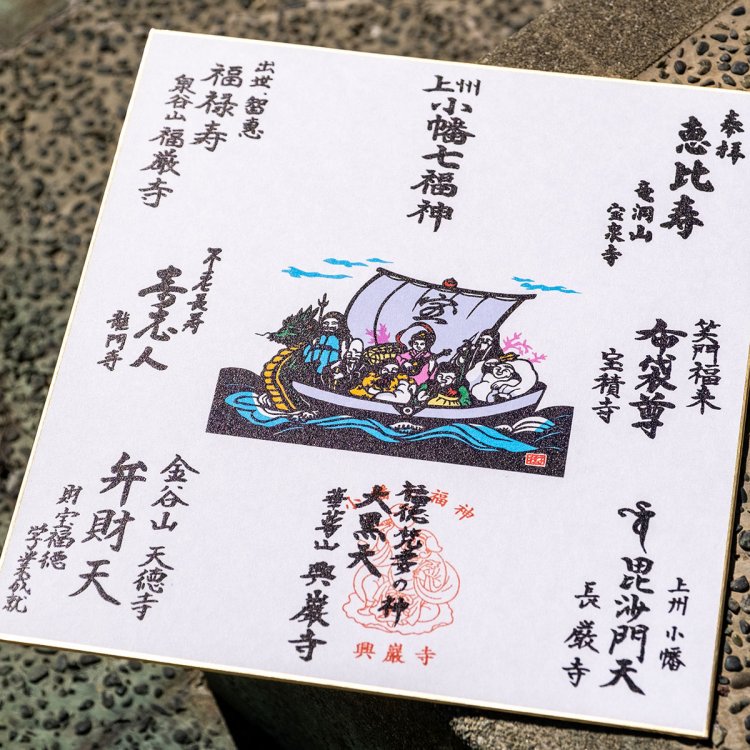 上州
小幡七福神
奉拝
恵比寿
竜洞山
宝泉寺
笑門福来
布袋尊
宝積寺
上州小幡
毘沙門天
長厳寺
福徳
の神
大黒天
興巌寺
福神
興巌寺
金谷山 天徳寺
弁財天
財宝福徳
学業成就
不老長寿
寿老人
龍門寺
出世・智恵
福禄寿
泉谷山 福厳寺
宝